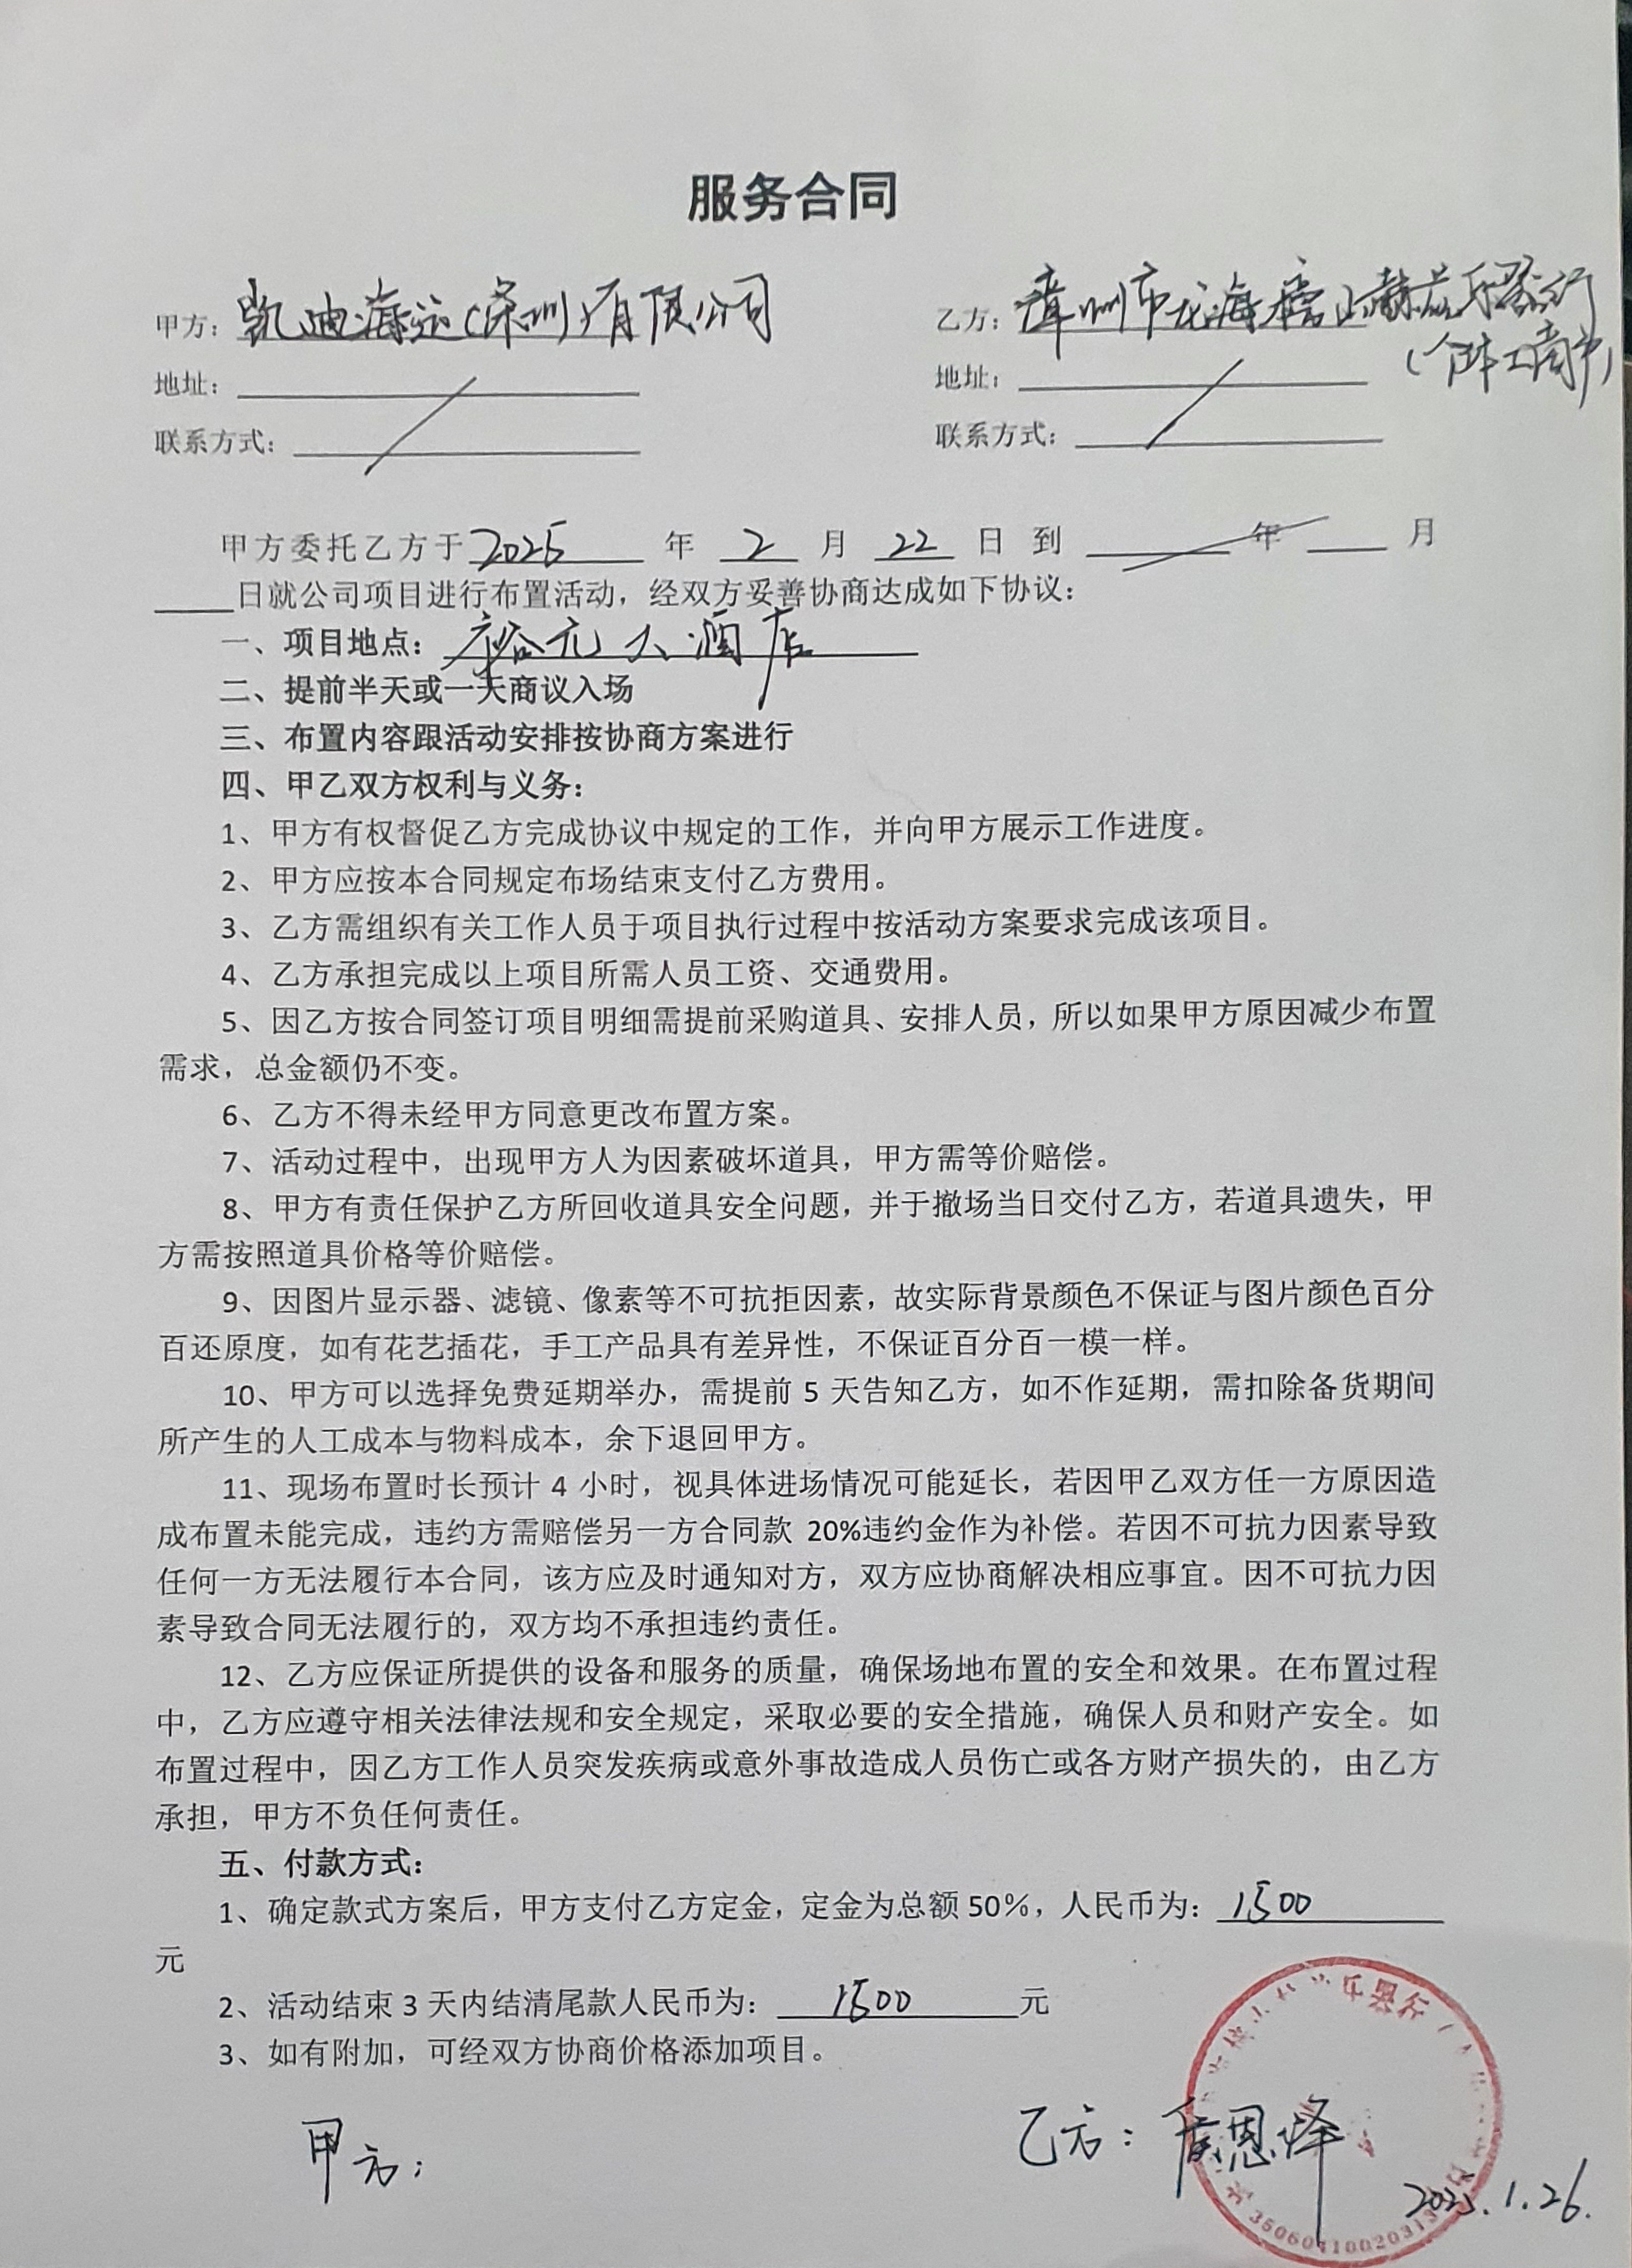 服务合同
甲方：凯迪海运（深圳）有限公司
乙方：漳州市龙海榜山赫兹乐器行
（个体工商户）
地址：
地址：
联系方式：
联系方式：
甲方委托乙方于2025年2月22日到 年 月
日就公司项目进行布置活动，经双方妥善协商达成如下协议：
一、项目地点：裕元大酒店
二、提前半天或一天商议入场
三、布置内容跟活动安排按协商方案进行
四、甲乙双方权利与义务：
1、甲方有权督促乙方完成协议中规定的工作，并向甲方展示工作进度。
2、甲方应按本合同规定布场结束支付乙方费用。
3、乙方需组织有关工作人员于项目执行过程中按活动方案要求完成该项目。
4、乙方承担完成以上项目所需人员工资、交通费用。
5、因乙方按合同签订项目明细需提前采购道具、安排人员，所以如果甲方原因减少布置
需求，总金额仍不变。
6、乙方不得未经甲方同意更改布置方案。
7、活动过程中，出现甲方人为因素破坏道具，甲方需等价赔偿。
8、甲方有责任保护乙方所回收道具安全问题，并于撤场当日交付乙方，若道具遗失，甲
方需按照道具价格等价赔偿。
9、因图片显示器、滤镜、像素等不可抗拒因素，故实际背景颜色不保证与图片颜色百分
百还原度，如有花艺插花，手工产品具有差异性，不保证百分百一模一样。
10、甲方可以选择免费延期举办，需提前 5 天告知乙方，如不作延期，需扣除备货期间
所产生的人工成本与物料成本，余下退回甲方。
11、现场布置时长预计 4 小时，视具体进场情况可能延长，若因甲乙双方任一方原因造
成布置未能完成，违约方需赔偿另一方合同款 20%违约金作为补偿。若因不可抗力因素导致
任何一方无法履行本合同，该方应及时通知对方，双方应协商解决相应事宜。因不可抗力因
素导致合同无法履行的，双方均不承担违约责任。
12、乙方应保证所提供的设备和服务的质量，确保场地布置的安全和效果。在布置过程
中，乙方应遵守相关法律法规和安全规定，采取必要的安全措施，确保人员和财产安全。如
布置过程中，因乙方工作人员突发疾病或意外事故造成人员伤亡或各方财产损失的，由乙方
承担，甲方不负任何责任。
五、付款方式：
1、确定款式方案后，甲方支付乙方定金，定金为总额 50%，人民币为：1500
元
2、活动结束 3 天内结清尾款人民币为：1500元
3、如有附加，可经双方协商价格添加项目。
乐器行
甲方：
乙方：恩泽
2025.1.26.